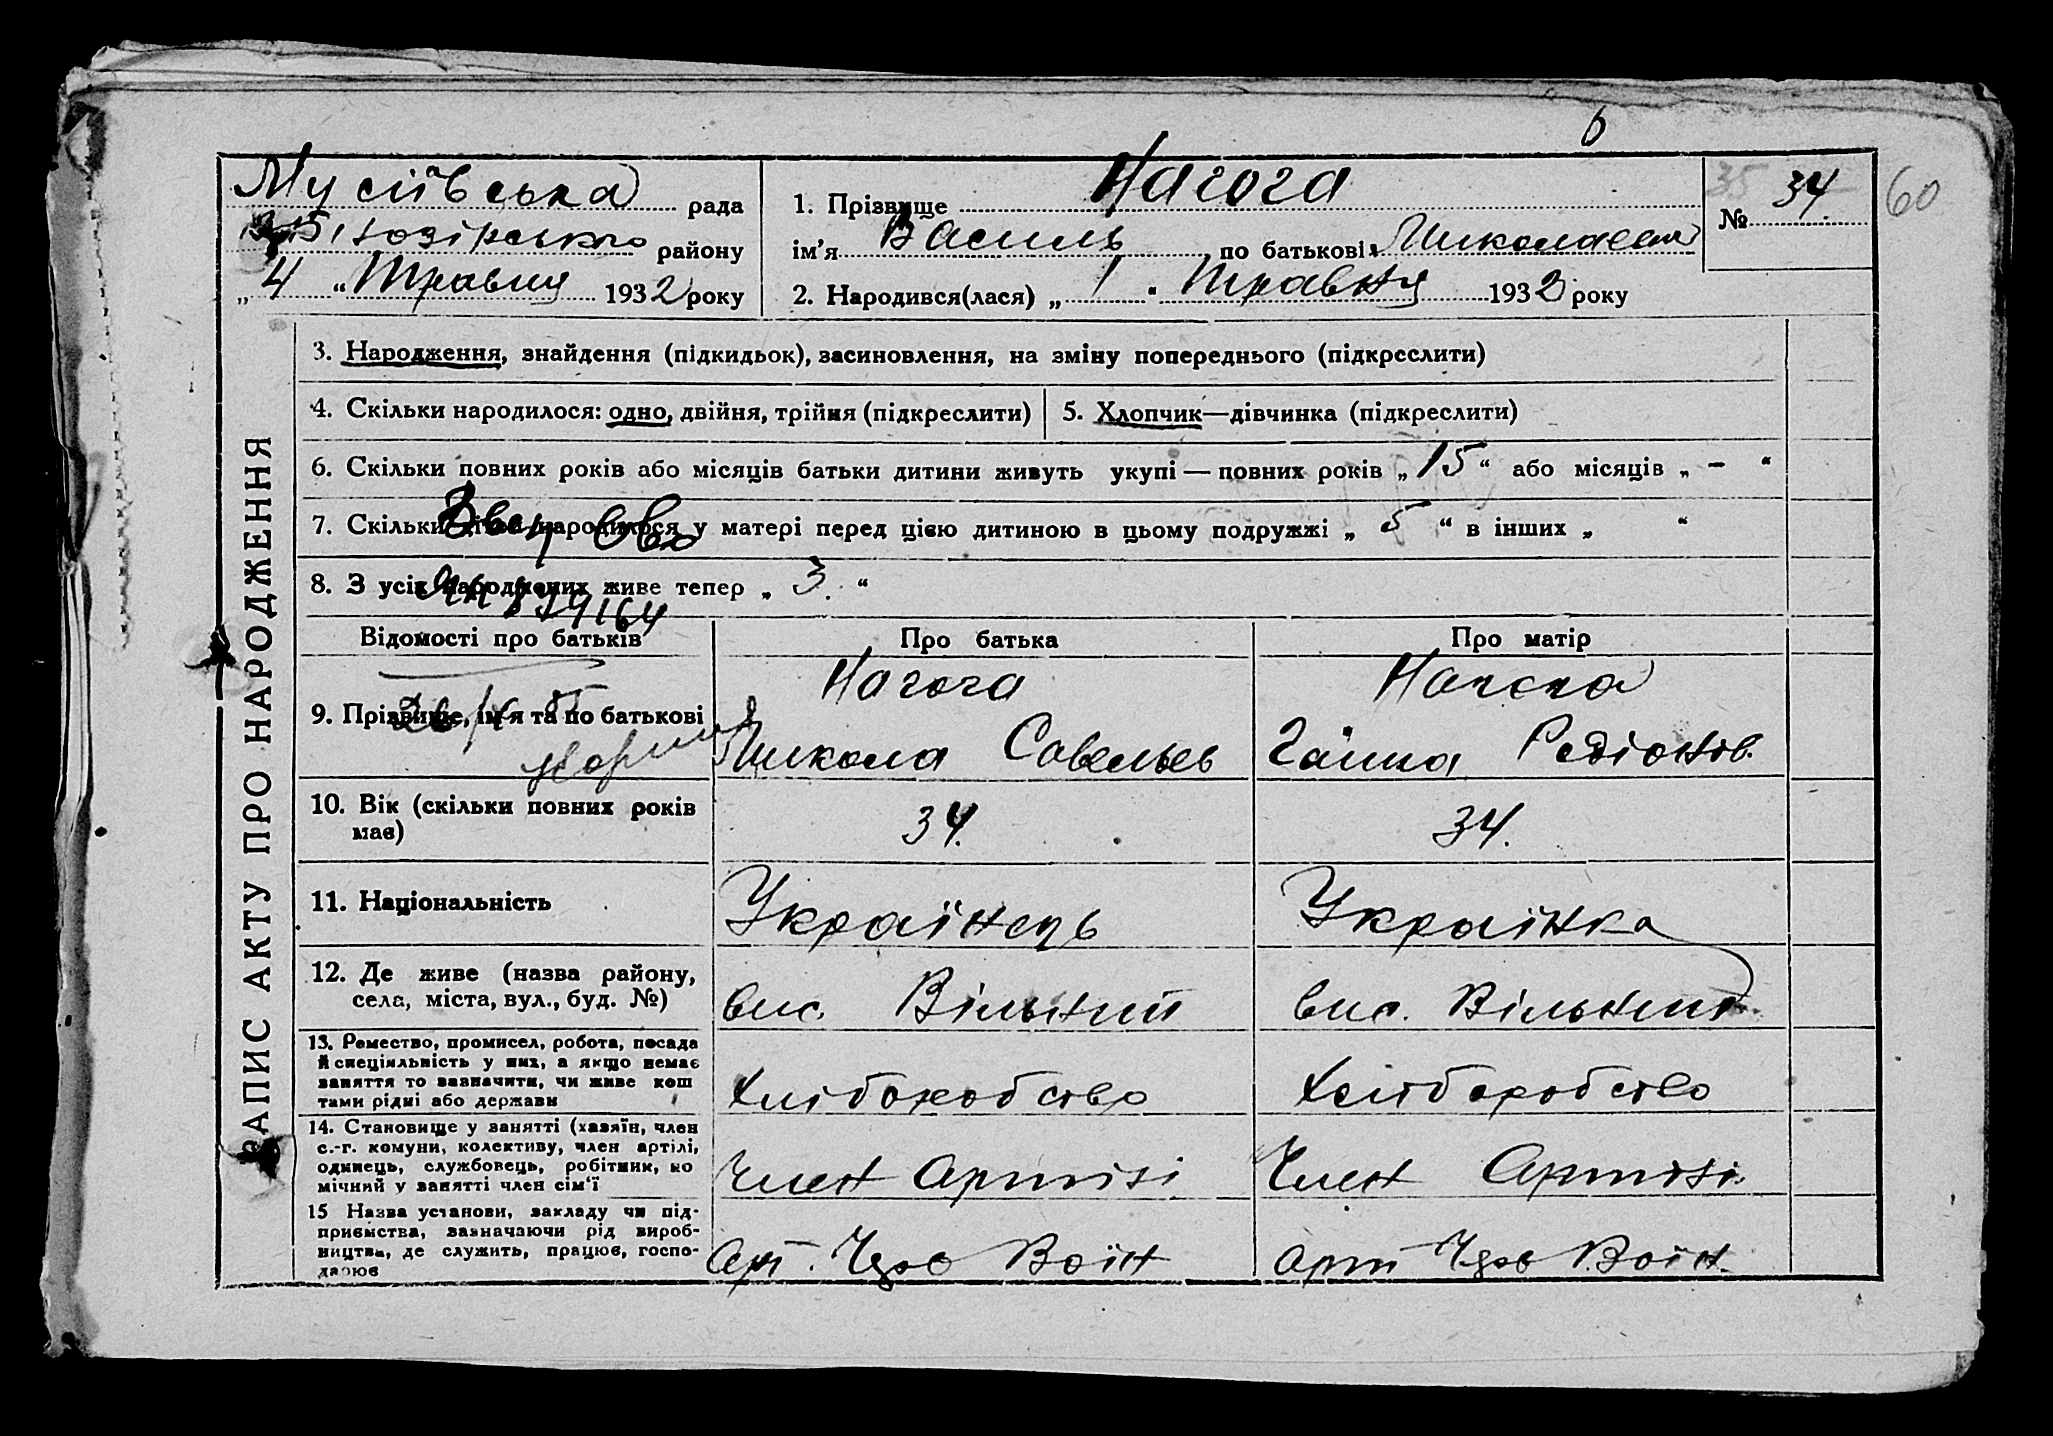 6
Мусіївська рада
району
„ 4 “ Травня 1932 року
1. Прізвище Нагога
ім'я Василь по батькові Миколаєв
2. Народився(лася) „ 1 “ Травня 1932 року
35 № 34
60
ЗАПИС АКТУ ПРО НАРОДЖЕННЯ
3. Народження, знайдення (підкидьок), засиновлення, на зміну попереднього (підкреслити)
4. Скільки народилося: одно, двійня, трійня (підкреслити)
5. Хлопчик—дівчинка (підкреслити)
6. Скільки повних років або місяців батьки дитини живуть укупі — повних років „ 15 “ або місяців „ - “
7. Скільки дітей народилося у матері перед цією дитиною в цьому подружжі „ 5 “ в інших „ “
8. З усіх народжених живе тепер „ 3. “
Відомості про батьків
Про батька
Про матір
9. Прізвище, ім'я та по батькові
Нагога
Микола Савельев
Ганна Редіонов.
10. Вік (скільки повних років має)
34.
34.
11. Національність
Українець
Українка
12. Де живе (назва району, села, міста, вул., буд. №)
вис. Вільний
вис. Вільний
13. Ремество, промисел, робота, посада й спеціяльність у них, а якщо немає заняття то зазначити, чи живе кош тами рідні або держави
Хліборобство
Хліборобство
14. Становище у занятті (хазяїн, член с.-г. комуни, колективу, член артілі, одинець, службовець, робітник, по мічний у занятті член сім'ї
Член Артілі
Член Артілі
15 Назва установи, закладу чи під-
приємства, зазначаючи рід вироб-
ництва, де служить, працює, госпо-
дарює
Арт. Черв Воїн
Арт Черв Воїн.